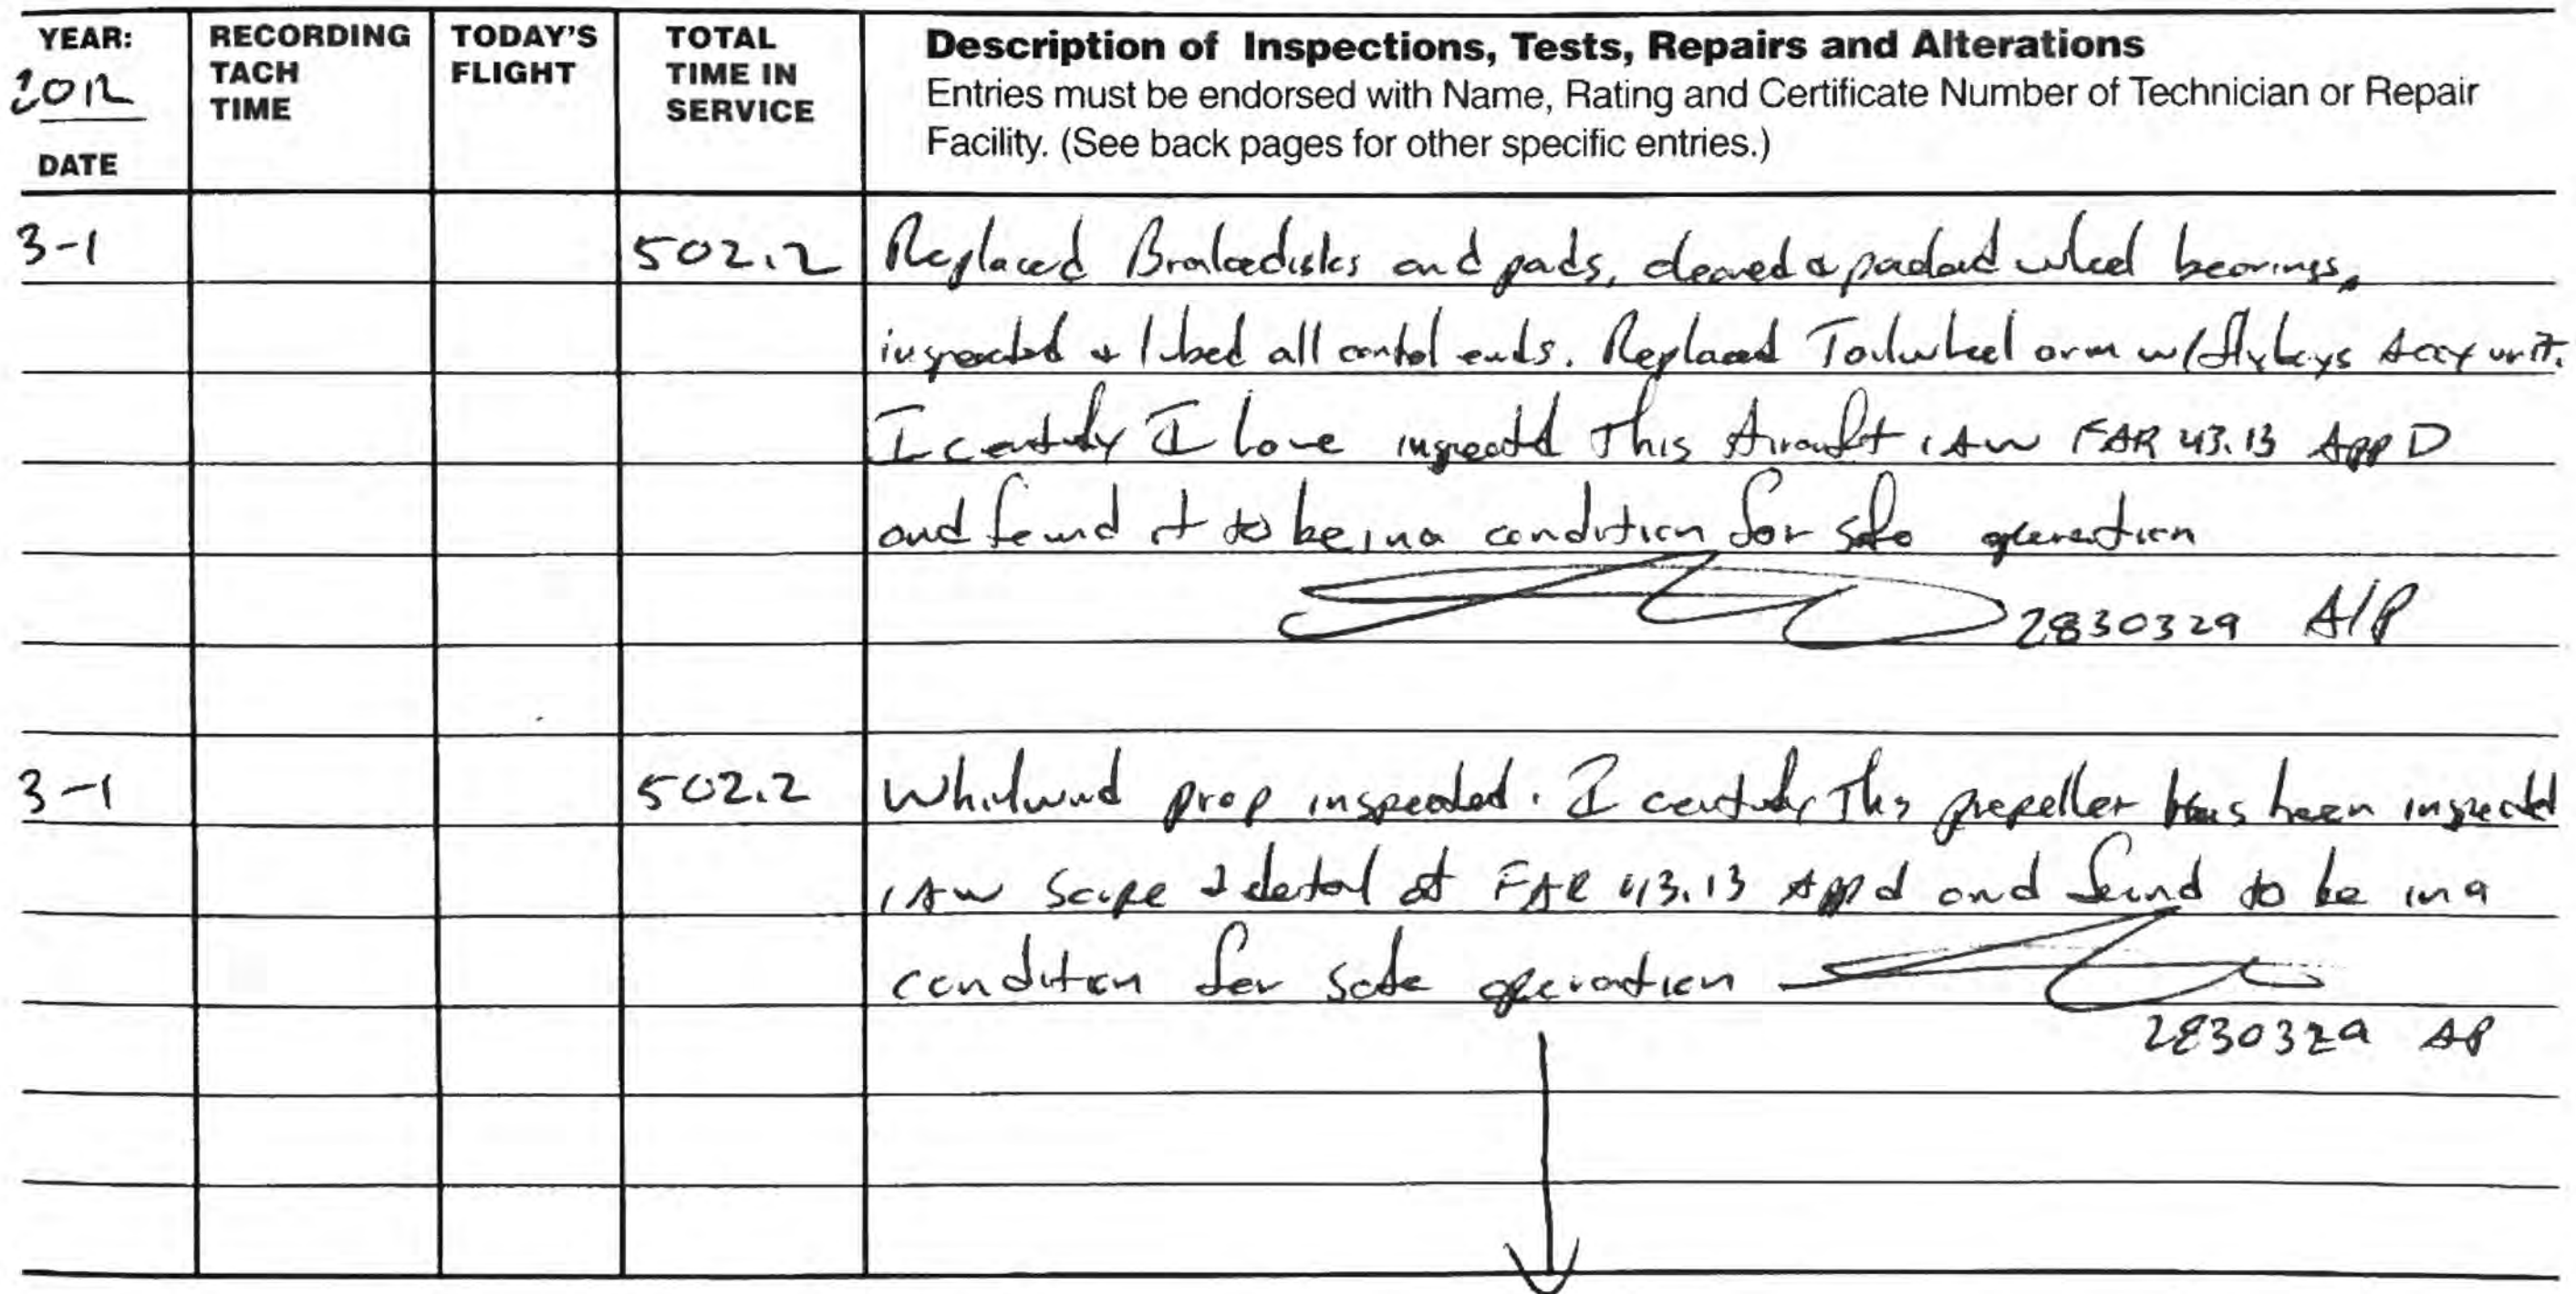 YEAR: 2012
DATE
RECORDING TACH TIME
TODAY'S FLIGHT
TOTAL TIME IN SERVICE
Description of Inspections, Tests, Repairs and Alterations
Entries must be endorsed with Name, Rating and Certificate Number of Technician or Repair
Facility. (See back pages for other specific entries.)
3-1 502.2 Replaced Brakedisks and pads, cleaned & packed wheel bearings,
inspected + lubed all control ends. Replaced Tailwheel arm w/ unit.
I certify I have inspected This Aircraft IAW FAR 43.13 App D
and found it to be in a condition for safe operation
2830329 A/P
3-1 502.2 Whirlwind prop inspected. I certify This propeller has been inspected
IAW Scope & detail of FAR 43.13 App d and found to be in a
condition for safe operation
2830329 AP